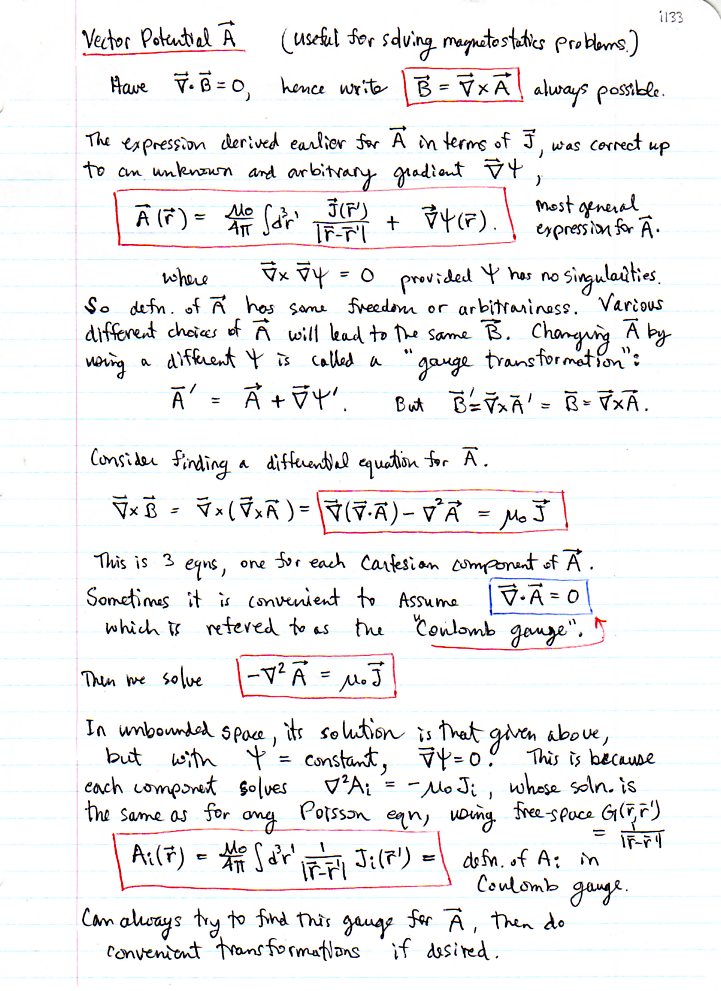 i133
Vector Potential A⃗ (useful for solving magnetostatics problems.)
Have ∇⃗·B⃗ = 0, hence write B⃗ = ∇⃗×A⃗ always possible.
The expression derived earlier for A⃗ in terms of J⃗, was correct up
to an unknown and arbitrary gradient ∇⃗Ψ,
A⃗(r⃗) = μ₀/4π ∫d³r' J⃗(r⃗')/|r⃗-r⃗'| + ∇⃗Ψ(r⃗). most general
expression for A⃗.
where ∇⃗×∇⃗Ψ = 0 provided Ψ has no singularities.
So defn. of A⃗ has some freedom or arbitrariness. Various
different choices of A⃗ will lead to the same B⃗. Changing A⃗ by
using a different Ψ is called a "gauge transformation":
A⃗' = A⃗ + ∇⃗Ψ'. But B⃗' = ∇⃗×A⃗' = B⃗ = ∇⃗×A⃗.
Consider finding a differential equation for A⃗.
∇⃗×B⃗ = ∇⃗×(∇⃗×A⃗) = ∇⃗(∇⃗·A⃗) - ∇²A⃗ = μ₀J⃗
This is 3 eqns, one for each Cartesian component of A⃗.
Sometimes it is convenient to Assume ∇⃗·A⃗ = 0
which is refered to as the "Coulomb gauge".
Then we solve -∇²A⃗ = μ₀J⃗
In unbounded space, its solution is that given above,
but with Ψ = constant, ∇⃗Ψ = 0. This is because
each component solves ∇²Aᵢ = -μ₀Jᵢ, whose soln. is
the same as for any Poisson eqn, using free-space G(r⃗,r⃗')
= 1/|r⃗-r⃗'|
Aᵢ(r⃗) = μ₀/4π ∫d³r' 1/|r⃗-r⃗'| Jᵢ(r⃗') = defn. of Aᵢ in
Coulomb gauge.
Can always try to find this gauge for A⃗, then do
convenient transformations if desired.